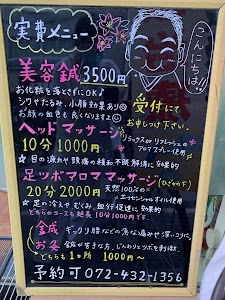 実費メニュー
こんにちは!!
美容鍼 3500円
お化粧を落とさずにOK♪
シワやたるみ、小顔効果あり
お顔の血色も良くなりますよ
受付にて
お申しつけ下さい。
ヘッドマッサージ
10分 1000円
リラックス or リフレッシュの
アロマスプレー使用
★ 目の疲れや頭痛の軽減、不眠解消に効果的
足ツボアロママッサージ(ひざ下)
20分 2000円
天然100%の
エッセンシャルオイル使用
★ 足の冷えやむくみ、血行促進に効果的
どちらのコースも延長10分1000円です。
ギックリ腰などの急な痛みや深いコリに。
お灸
鍼が苦手な方、じんわりとツボを刺激。
どちらも1ヶ所 1000円〜
予約可 072-432-1356